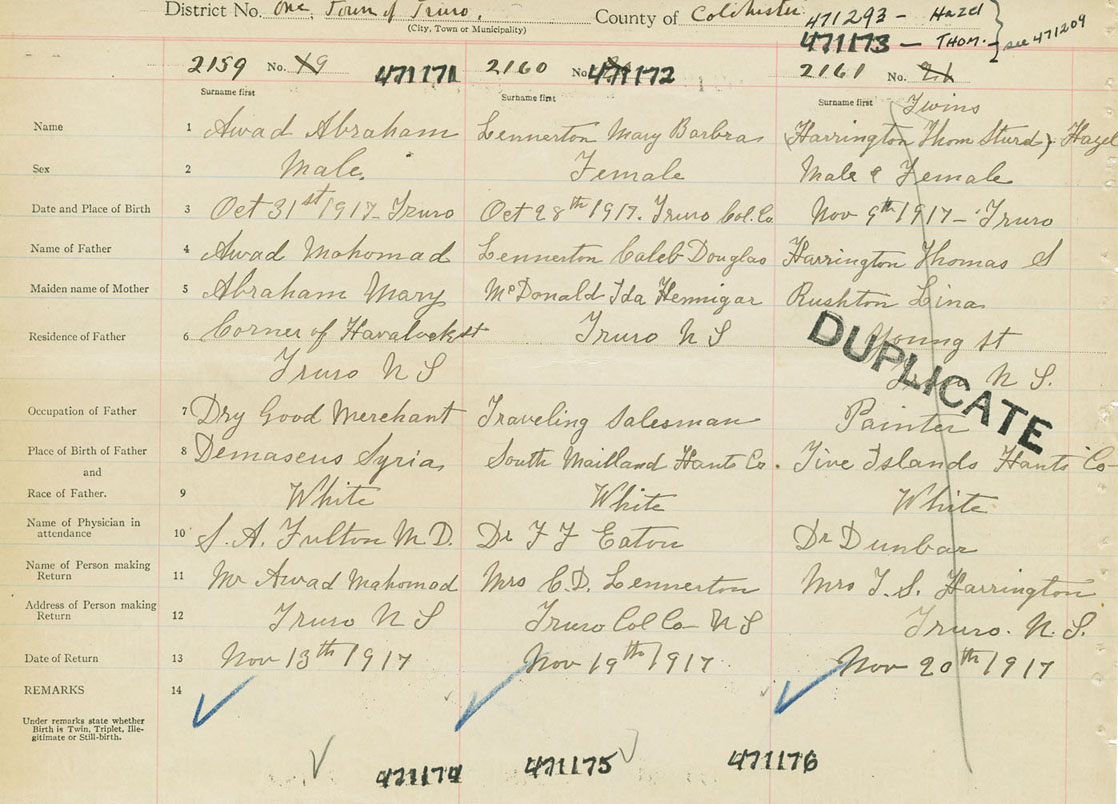 District No. One, Town of Truro, County of Colchester
(City, Town or Municipality)
471293 - Hazel
471173 - THOM. - see 471209
2159 No. 19 471171 2160 No. 471172 2161 No. 21
Surname first Surname first Surname first Twins
Name 1 Awad Abraham Lennerton Mary Barbra Harrington Thom Sturd) Hazel
Sex 2 Male. Female Male & Female
Date and Place of Birth 3 Oct 31st 1917 - Truro Oct 28th 1917. Truro Col. Co. Nov 9th 1917 - Truro
Name of Father 4 Awad Mahomad Lennerton Caleb Douglas Harrington Thomas S
Maiden name of Mother 5 Abraham Mary McDonald Ida Hennigar Rushton Lina
Residence of Father 6 Corner of Havalock st Truro N S Young st
Truro N S N S.
DUPLICATE
Occupation of Father 7 Dry Good Merchant Traveling Salesman Painter
Place of Birth of Father 8 Demascus Syria South Maitland Hants Co. Five Islands Hants Co
and
Race of Father. 9 White White White
Name of Physician in attendance 10 S. A. Fulton M D. Dr F F Eaton Dr Dunbar
Name of Person making Return 11 Mr Awad Mahomad Mrs C. D. Lennerton Mrs T. S. Harrington
Address of Person making Return 12 Truro N S Truro Col Co N S Truro. N. S.
Date of Return 13 Nov 13th 1917 Nov 19th 1917 Nov 20th 1917
REMARKS 14
Under remarks state whether
Birth is Twin, Triplet, Ille-
gitimate or Still-birth.
471174 471175 471176